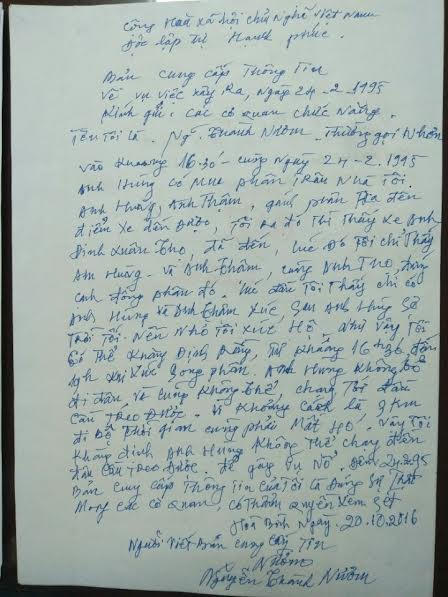 Cộng Hòa xã hội chủ Nghĩa Việt Nam
Độc lập Tự Hạnh phúc.
Bản cung cấp Thông Tin
Về vụ việc xảy Ra, Ngày 24-2-1995
Kính gửi: Các cơ quan chức Năng.
Tên Tôi là. Thường gọi
Vào khoảng 16-30 - cùng Ngày 24-2-1995
Anh Hùng có Mua phân Trâu Nhà Tôi.
Anh Hùng, Anh Thậm, phân Ra đến
điểm xe đến được, Tôi Ra đó Thì Thấy xe Anh
Đinh Xuân Thọ, đã đến, lúc đó Tôi chỉ Thấy
Anh Hùng - và Anh Thậm, cùng Anh Thọ, đứng
cạnh đống phân đó. lúc đầu Tôi Thấy chỉ có
Anh Hùng và Anh Thậm Xúc, Sau Anh Hùng Sợ
Trời Tối - Nên Nhờ Tôi xúc Hộ như vậy Tôi
Có Thể Khẳng Định Rằng, Từ khoảng 16h30 đến
Xúc Song phân. Anh Hùng Không bỏ
đi đâu và cũng Không Thể, chạy Tới đầu
Cầu Treo Được. Vì Khoảng cách là 9Km
đi Bộ Thời gian cũng phải Mất Vậy Tôi
Khẳng định Anh Hùng Không Thể chạy đến
đầu Cầu Treo Được. Để gây vụ Nổ. đêm 24.2.95
Bản cung cấp Thông Tin của Tôi là Đúng Sự Thật
Mong các cơ quan, có Thẩm quyền xem xét
Hòa Bình Ngày. 20.10.2016
Người Viết Bản cung cấp Tin
Nguyễn Thành